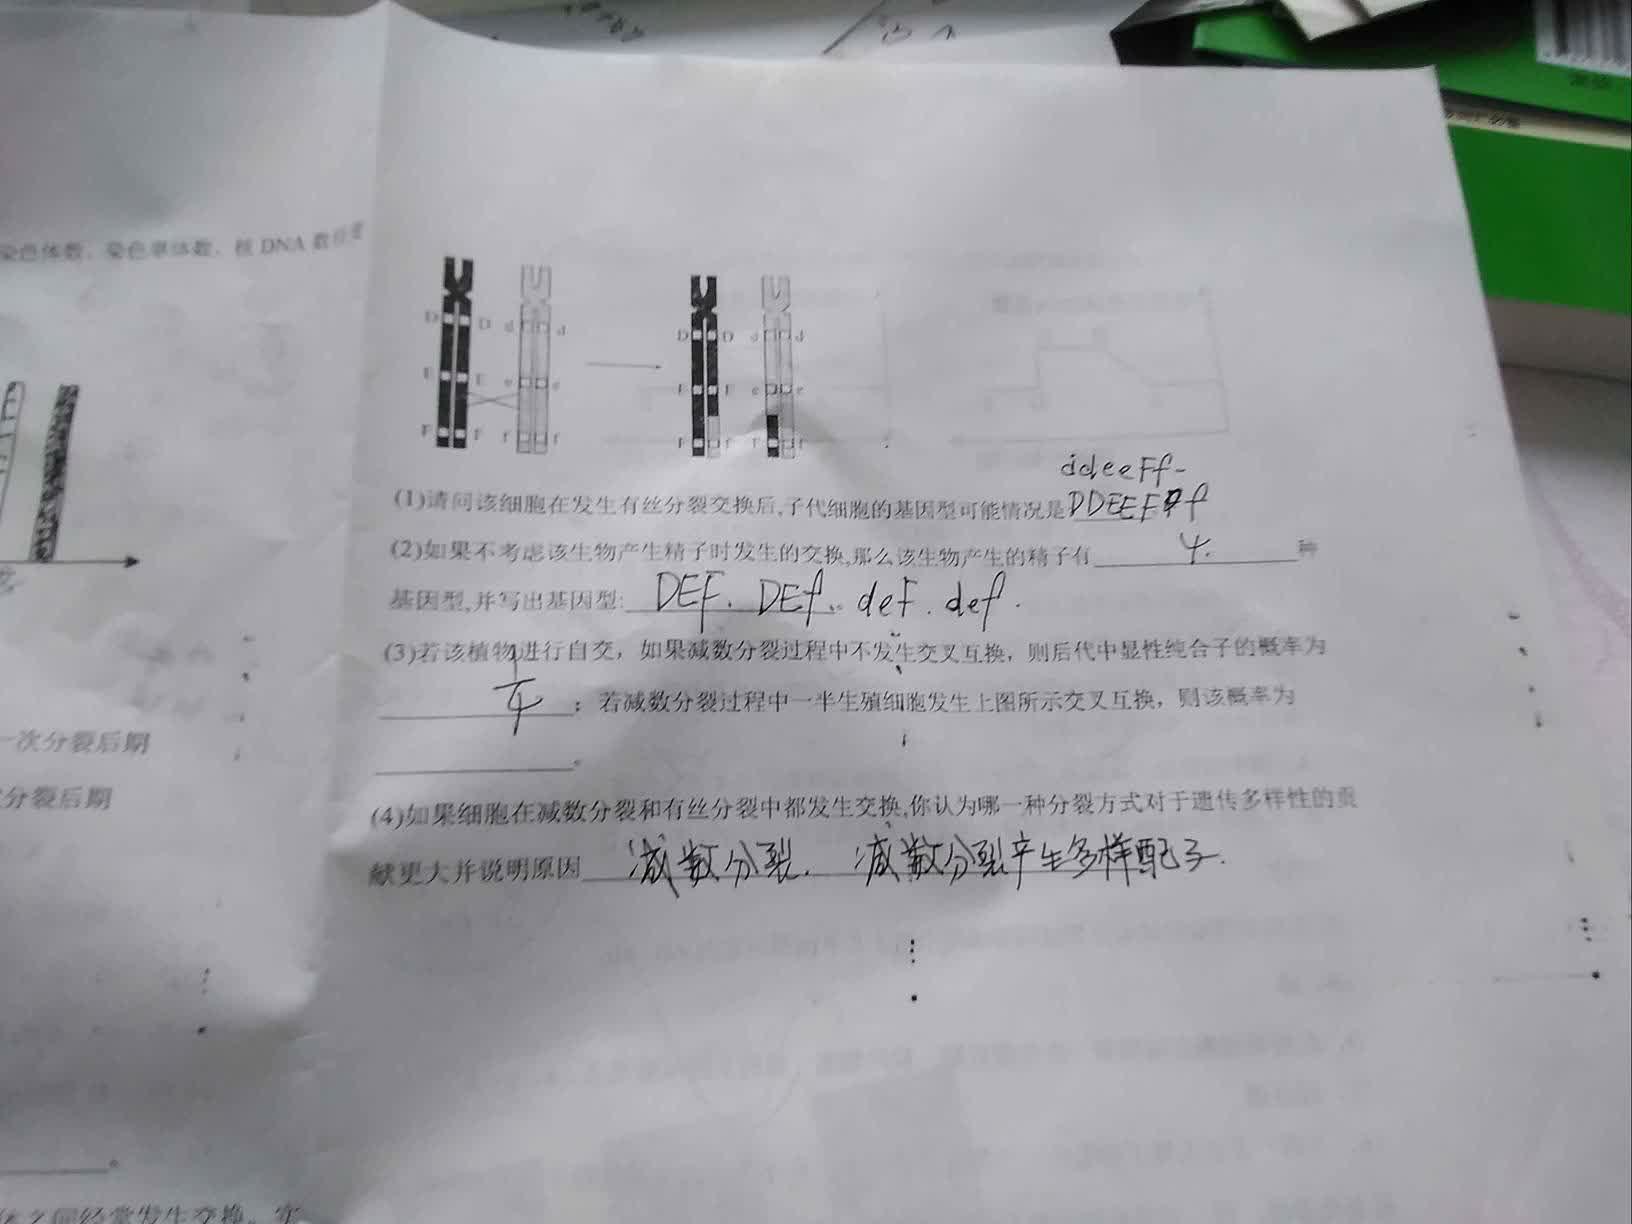 染色体数、染色单体数、核DNA数
D D d d
D D d d
E E e e
E E e e
F F f f
F f F f
ddeeFf-
(1)请问该细胞在发生有丝分裂交换后,子代细胞的基因型可能情况是DDEEFf
(2)如果不考虑该生物产生精子时发生的交换,那么该生物产生的精子有 4. 种
基因型,并写出基因型: DEF. DEf. deF. def.
(3)若该植物进行自交，如果减数分裂过程中不发生交叉互换，则后代中显性纯合子的概率为
1/4 ；若减数分裂过程中一半生殖细胞发生上图所示交叉互换，则该概率为
。
(4)如果细胞在减数分裂和有丝分裂中都发生交换,你认为哪一种分裂方式对于遗传多样性的贡
献更大并说明原因 减数分裂. 减数分裂产生多样配子.
一次分裂后期
分裂后期
。
体之间经常发生交换。